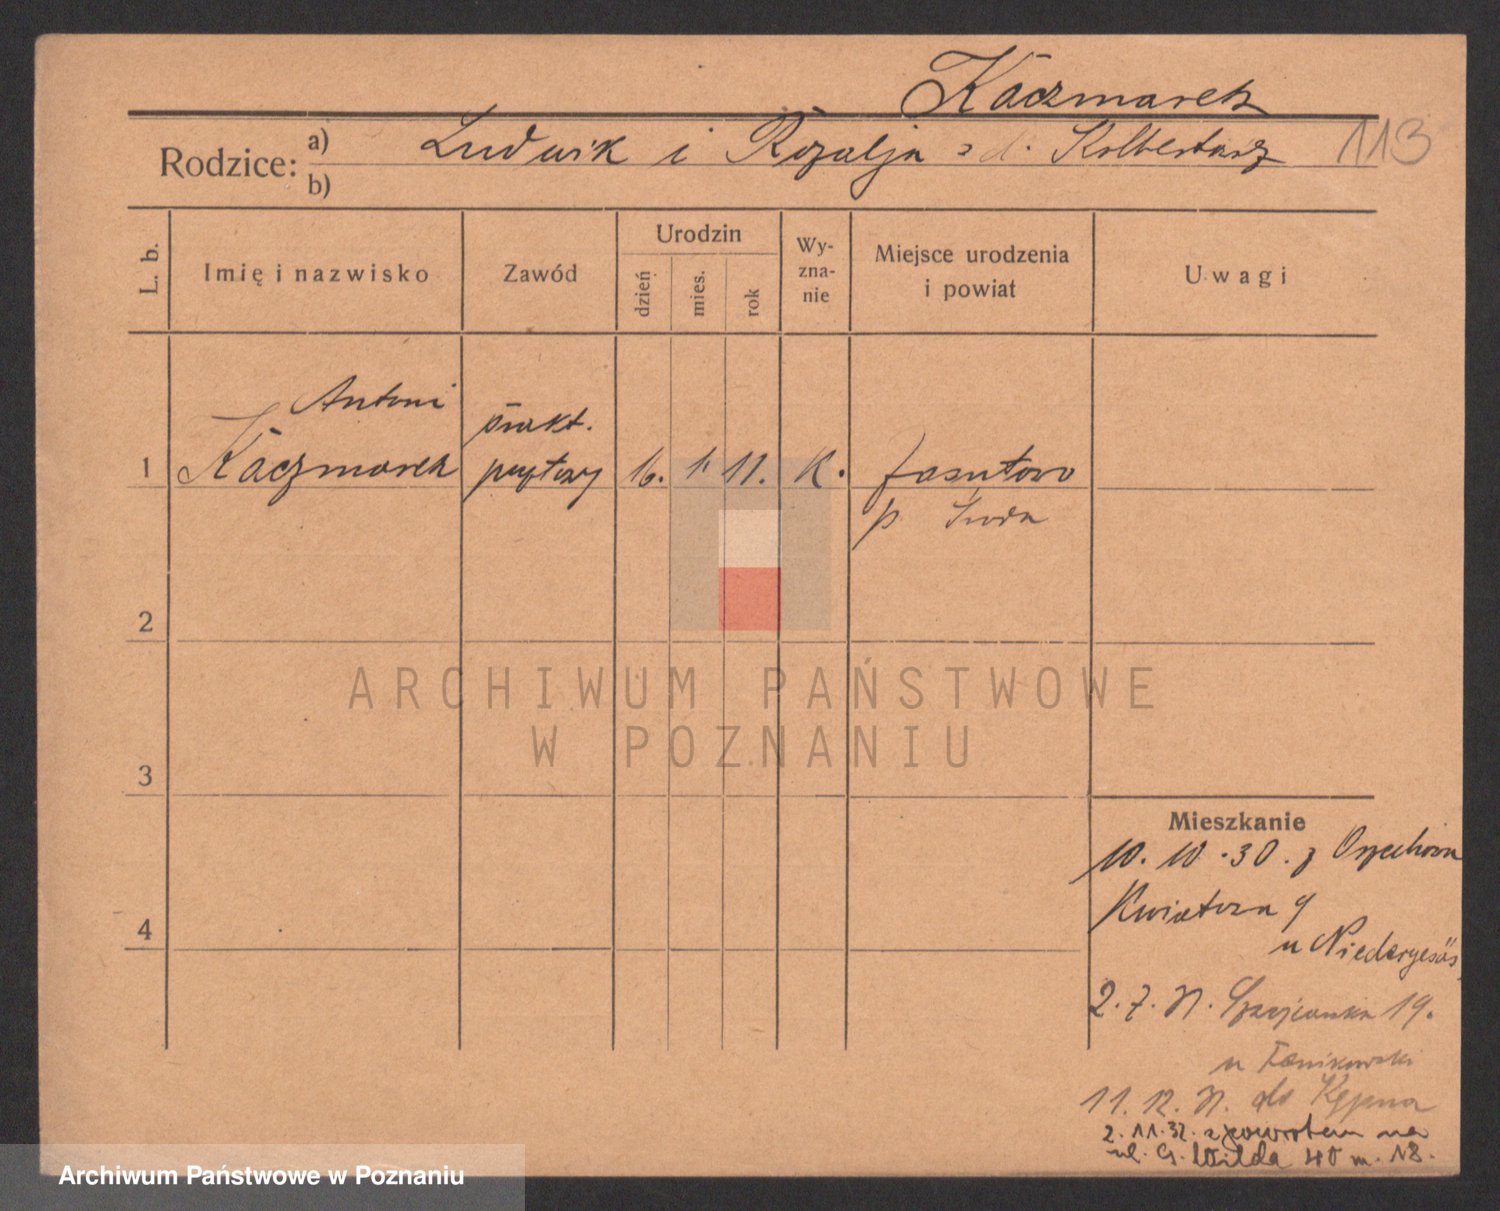 Kaczmarek
Rodzice: a) Ludwik i Rozalja z d.
113
b)
L. b.
Imię i nazwisko
Zawód
Urodzin
dzień
mies.
rok
Wy-
zna-
nie
Miejsce urodzenia
i powiat
Uwagi
Antoni
1 Kaczmarek
prakt.
16. 1. 11. K.
p. Środa
2
ARCHIWUM PAŃSTWOWE
W POZNANIU
3
4
Mieszkanie
10. 10. 30. z
Kwiatowa 9
u Niedergesäs
2. 7. 31. 19.
u
11. 12. 31. do Kępna
2. 11. 32. z powrotem na
ul. G. Wilda 40 m. 18.
Archiwum Państwowe w Poznaniu